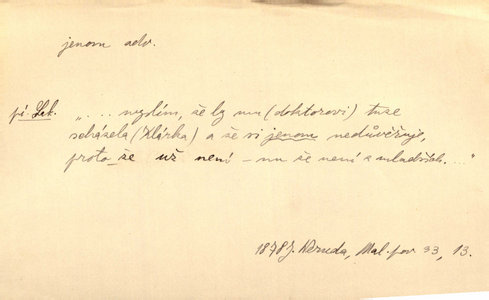 jenom adv.
pí. Lek. „. . . myslím, že by mu (doktorovi) tuze
scházela (Klárka) a že si jenom nedůvěřuje,
proto že už není – nu že není z mladších. . .“
1878 J. Neruda, Mal. pov 33, 13.